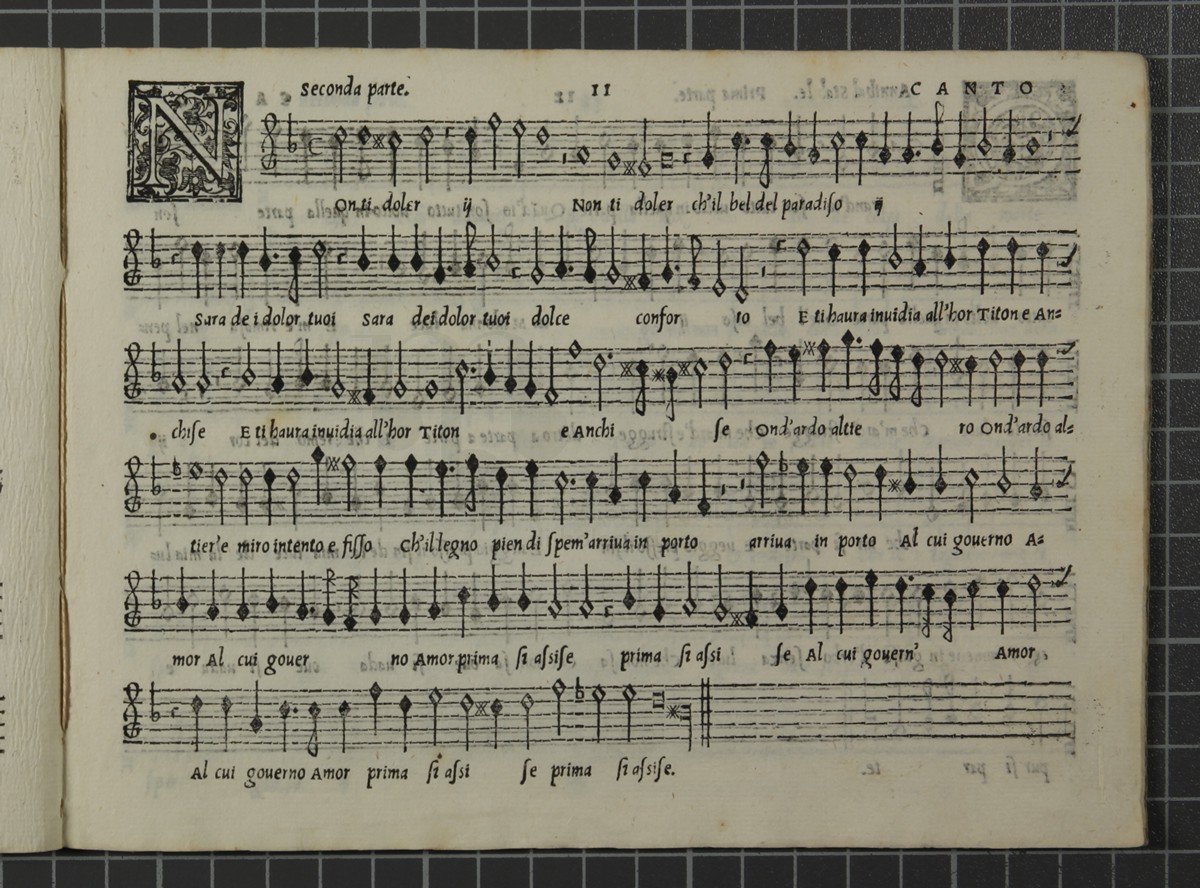 Seconda parte. 11 CANTO
NOn ti doler ij Non ti doler ch'il bel del paradiso ij
Sara de i dolor tuoi Sara dei dolor tuoi dolce confor to E ti haura inuidia all'hor Titon e An=
chise E ti haura inuidia all'hor Titon e Anchi se Ond'ardo altie ro Ond'ardo al=
tier'e miro intento e fisso Ch'il legno pien di spem'arriua in porto arriua in porto Al cui gouerno A=
mor Al cui gouer no Amor prima si assise prima si assi se Al cui gouern' Amor,
Al cui gouerno Amor prima si assi se prima si assise.